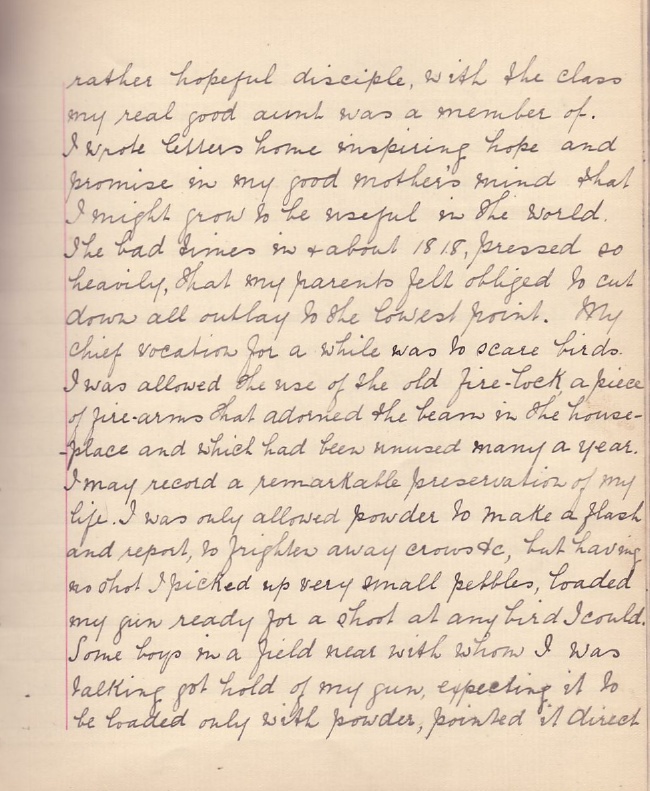 rather hopeful disciple, with the class
my real good aunt was a member of.
I wrote letters home inspiring hope and
promise in my good mother's mind that
I might grow to be useful in the world.
The bad times in & about 1818, pressed so
heavily, that my parents felt obliged to cut
down all outlay to the lowest point. My
chief vocation for a while was to scare birds.
I was allowed the use of the old fire-lock a piece
of fire-arms that adorned the beam in the house-
-place and which had been unused many a year.
I may record a remarkable preservation of my
life. I was only allowed powder to make a flash
and report, to frighten away crows &c, but having
no shot I picked up very small pebbles, loaded
my gun ready for a shoot at any bird I could.
Some boys in a field near with whom I was
talking got hold of my gun, expecting it to
be loaded only with powder, pointed it direct